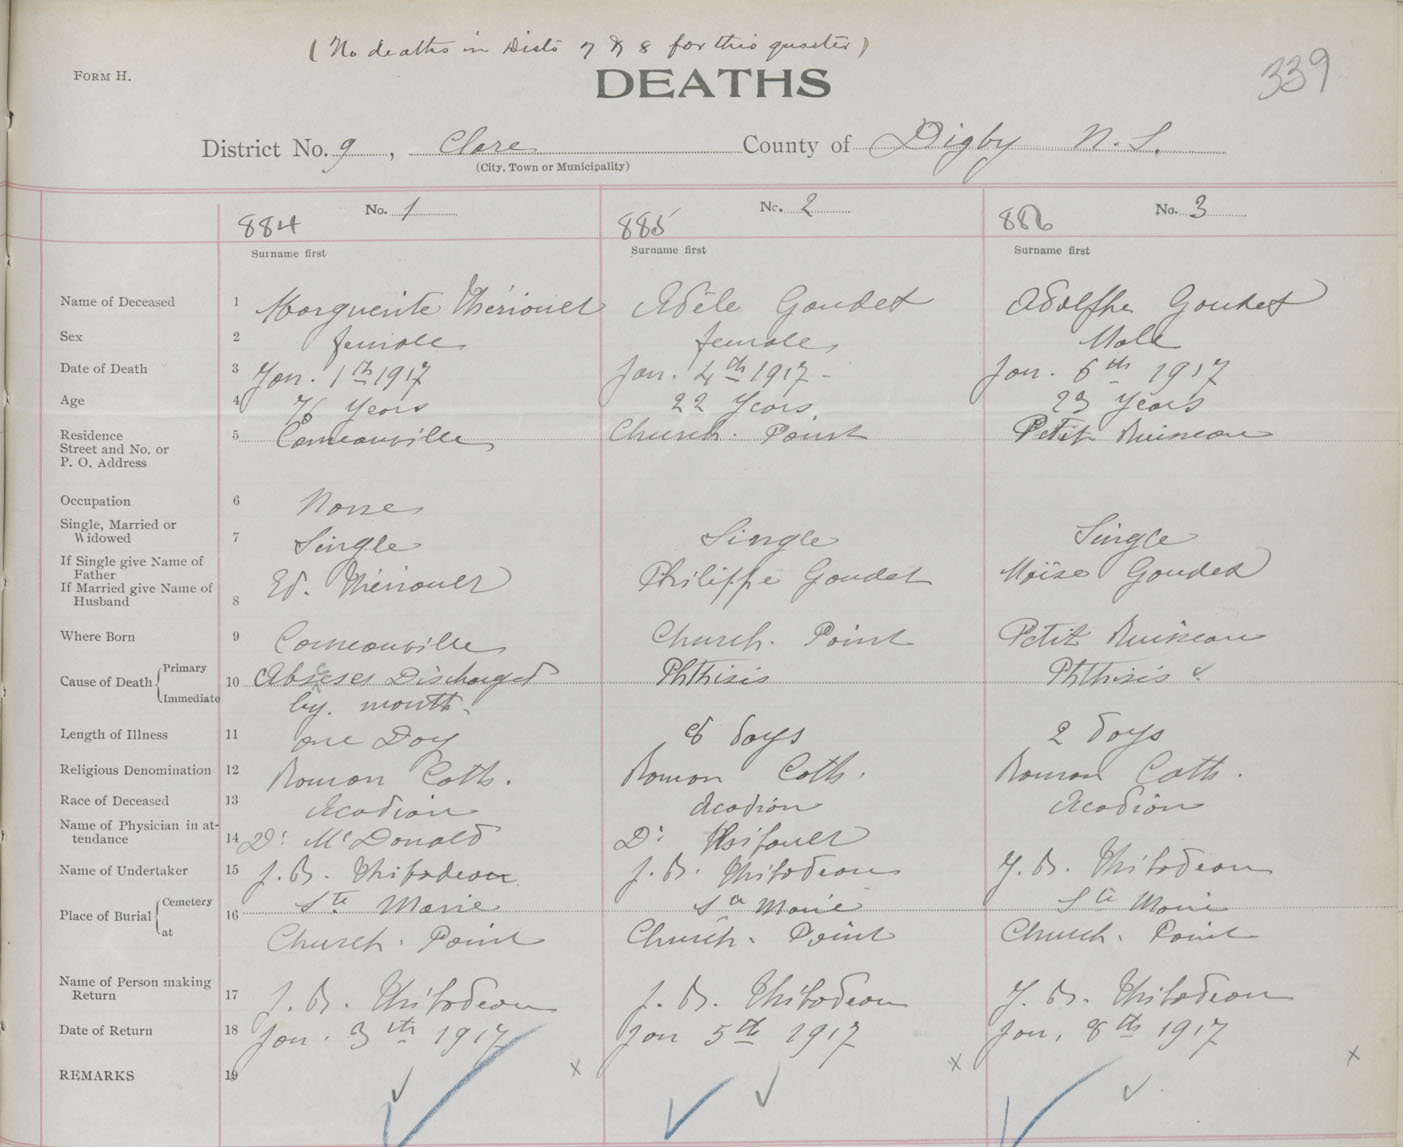 (No deaths in Dists 7 & 8 for this quarter)
FORM H.
DEATHS
339
District No. 9, Clare County of Digby N.S.
(City, Town or Municipality)
884 No. 1 885 No. 2 886 No. 3
Surname first Surname first Surname first
Name of Deceased 1 Marguerite Thériault Adèle Gaudet Adolphe Gaudet
Sex 2 female female Male
Date of Death 3 Jan. 1th 1917 Jan. 4th 1917 - Jan. 6th 1917
Age 4 76 years 22 years. 23 years
Residence
Street and No. or
P. O. Address 5 Comeauville Church. Point Petit Ruisseau
Occupation 6 None
Single, Married or
Widowed 7 Single Single Single
If Single give Name of
Father
If Married give Name of
Husband 8 Ed. Thériault Philippe Gaudet Moïse Gaudet
Where Born 9 Comeauville Church. Point Petit Ruisseau
Cause of Death Primary 10 Abscess Discharged Phthisis Phthisis
Immediate by. mouth.
Length of Illness 11 one Day 8 days 2 days
Religious Denomination 12 Roman Cath. Roman Cath. Roman Cath.
Race of Deceased 13 Acadian Acadian Acadian
Name of Physician in at-
tendance 14 Dr McDonald Dr
Name of Undertaker 15 J. B. Thibodeau J. B. Thibodeau J. B. Thibodeau
Place of Burial Cemetery 16 Ste Marie Ste Marie Ste Marie
at Church. Point Church. Point Church. Point
Name of Person making
Return 17 J. B. Thibodeau J. B. Thibodeau J. B. Thibodeau
Date of Return 18 Jan. 3th 1917 Jan 5th 1917 Jan. 8th 1917
REMARKS 19 x x x